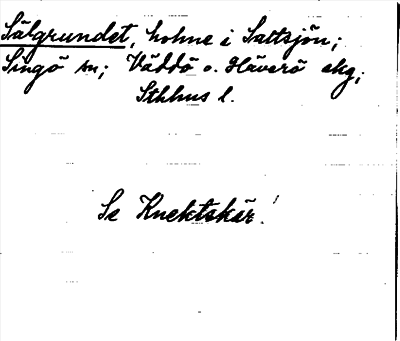 Sälgrundet, holme i Saltsjön;
Singö sn; Väddö o. Häverö skg;
Sthlms l.
Se Knektskär!